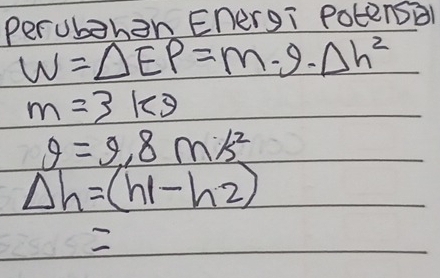 Perubahan Energi Potensial
W = ΔEP = m.g.Δh²
m = 3 kg
g = 9,8 m/s²
Δh = (h1 - h2)
=